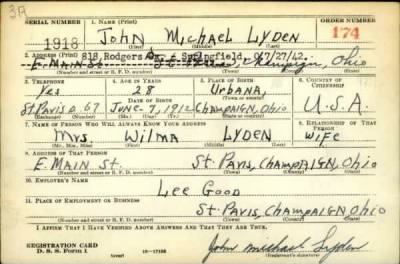 3A
SERIAL NUMBER 1. NAME (Print) ORDER NUMBER
1918 JOHN MICHAEL LYDEN 174
(First) (Middle) (Last)
2. ADDRESS (Print) 818 Rodgers Dr. Springfield, O 7/27/42
E. MAIN St. St. Paris, Champaign, Ohio
(Number and street or R. F. D. number) (Town) (County) (State)
3. TELEPHONE 4. AGE IN YEARS 5. PLACE OF BIRTH 6. COUNTRY OF CITIZENSHIP
Yes 28 Urbana,
St. Paris 67 DATE OF BIRTH (Town or county)
JUNE 7, 1912 CHAMPAIGN, Ohio U.S.A.
(Exchange) (Number) (Mo.) (Day) (Yr.) (State or country)
7. NAME OF PERSON WHO WILL ALWAYS KNOW YOUR ADDRESS 8. RELATIONSHIP OF THAT PERSON
Mrs Wilma LYDEN wife
(Mr., Mrs., Miss) (First) (Middle) (Last)
9. ADDRESS OF THAT PERSON
E. MAIN St. St. Paris, CHAMPAIGN, Ohio
(Number and street or R. F. D. number) (Town) (County) (State)
10. EMPLOYER'S NAME
Lee Good
11. PLACE OF EMPLOYMENT OR BUSINESS
St. Paris, CHAMPAIGN, Ohio
(Number and street or R. F. D. number) (Town) (County) (State)
I AFFIRM THAT I HAVE VERIFIED ABOVE ANSWERS AND THAT THEY ARE TRUE.
REGISTRATION CARD
D. S. S. Form 1 (over) 16—17105 John Michael Lyden
(Registrant's signature)